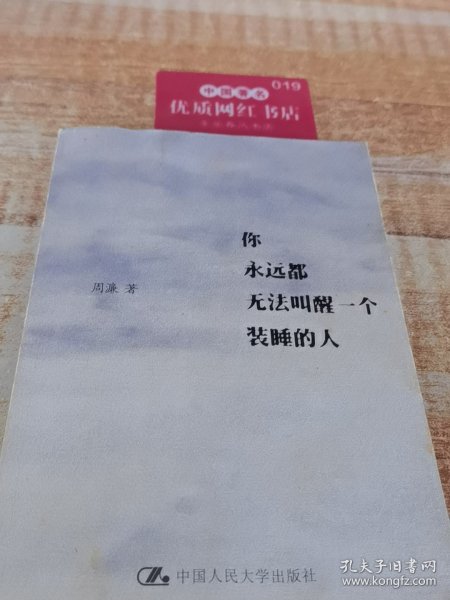 019
中国著名
优质网红书店
你
永远都
无法叫醒一个
装睡的人
周濂 著
中国人民大学出版社
孔夫子旧书网
www.kongfz.com